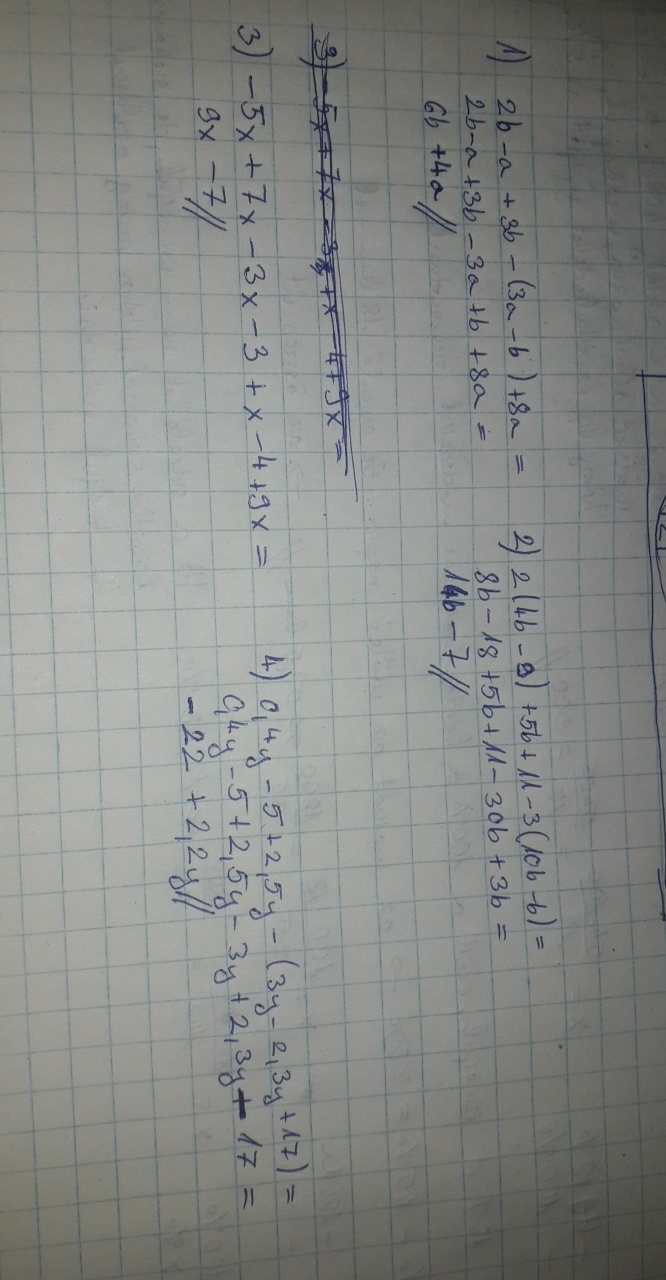 1) 2b-a+3b-(3a-b)+8a=
2b-a+3b-3a+b+8a=
6b+4a//
2) 2(4b-9)+5b+11-3(10b-b)=
8b-18+5b+11-30b+3b=
14b-7//
3) -5x+7x-3x+x-4+9x=
3) -5x+7x-3x-3+x-4+9x=
9x-7//
4) 0,4y-5+2,5y-(3y-2,3y+17)=
0,4y-5+2,5y-3y+2,3y-17=
-22+2,2y//